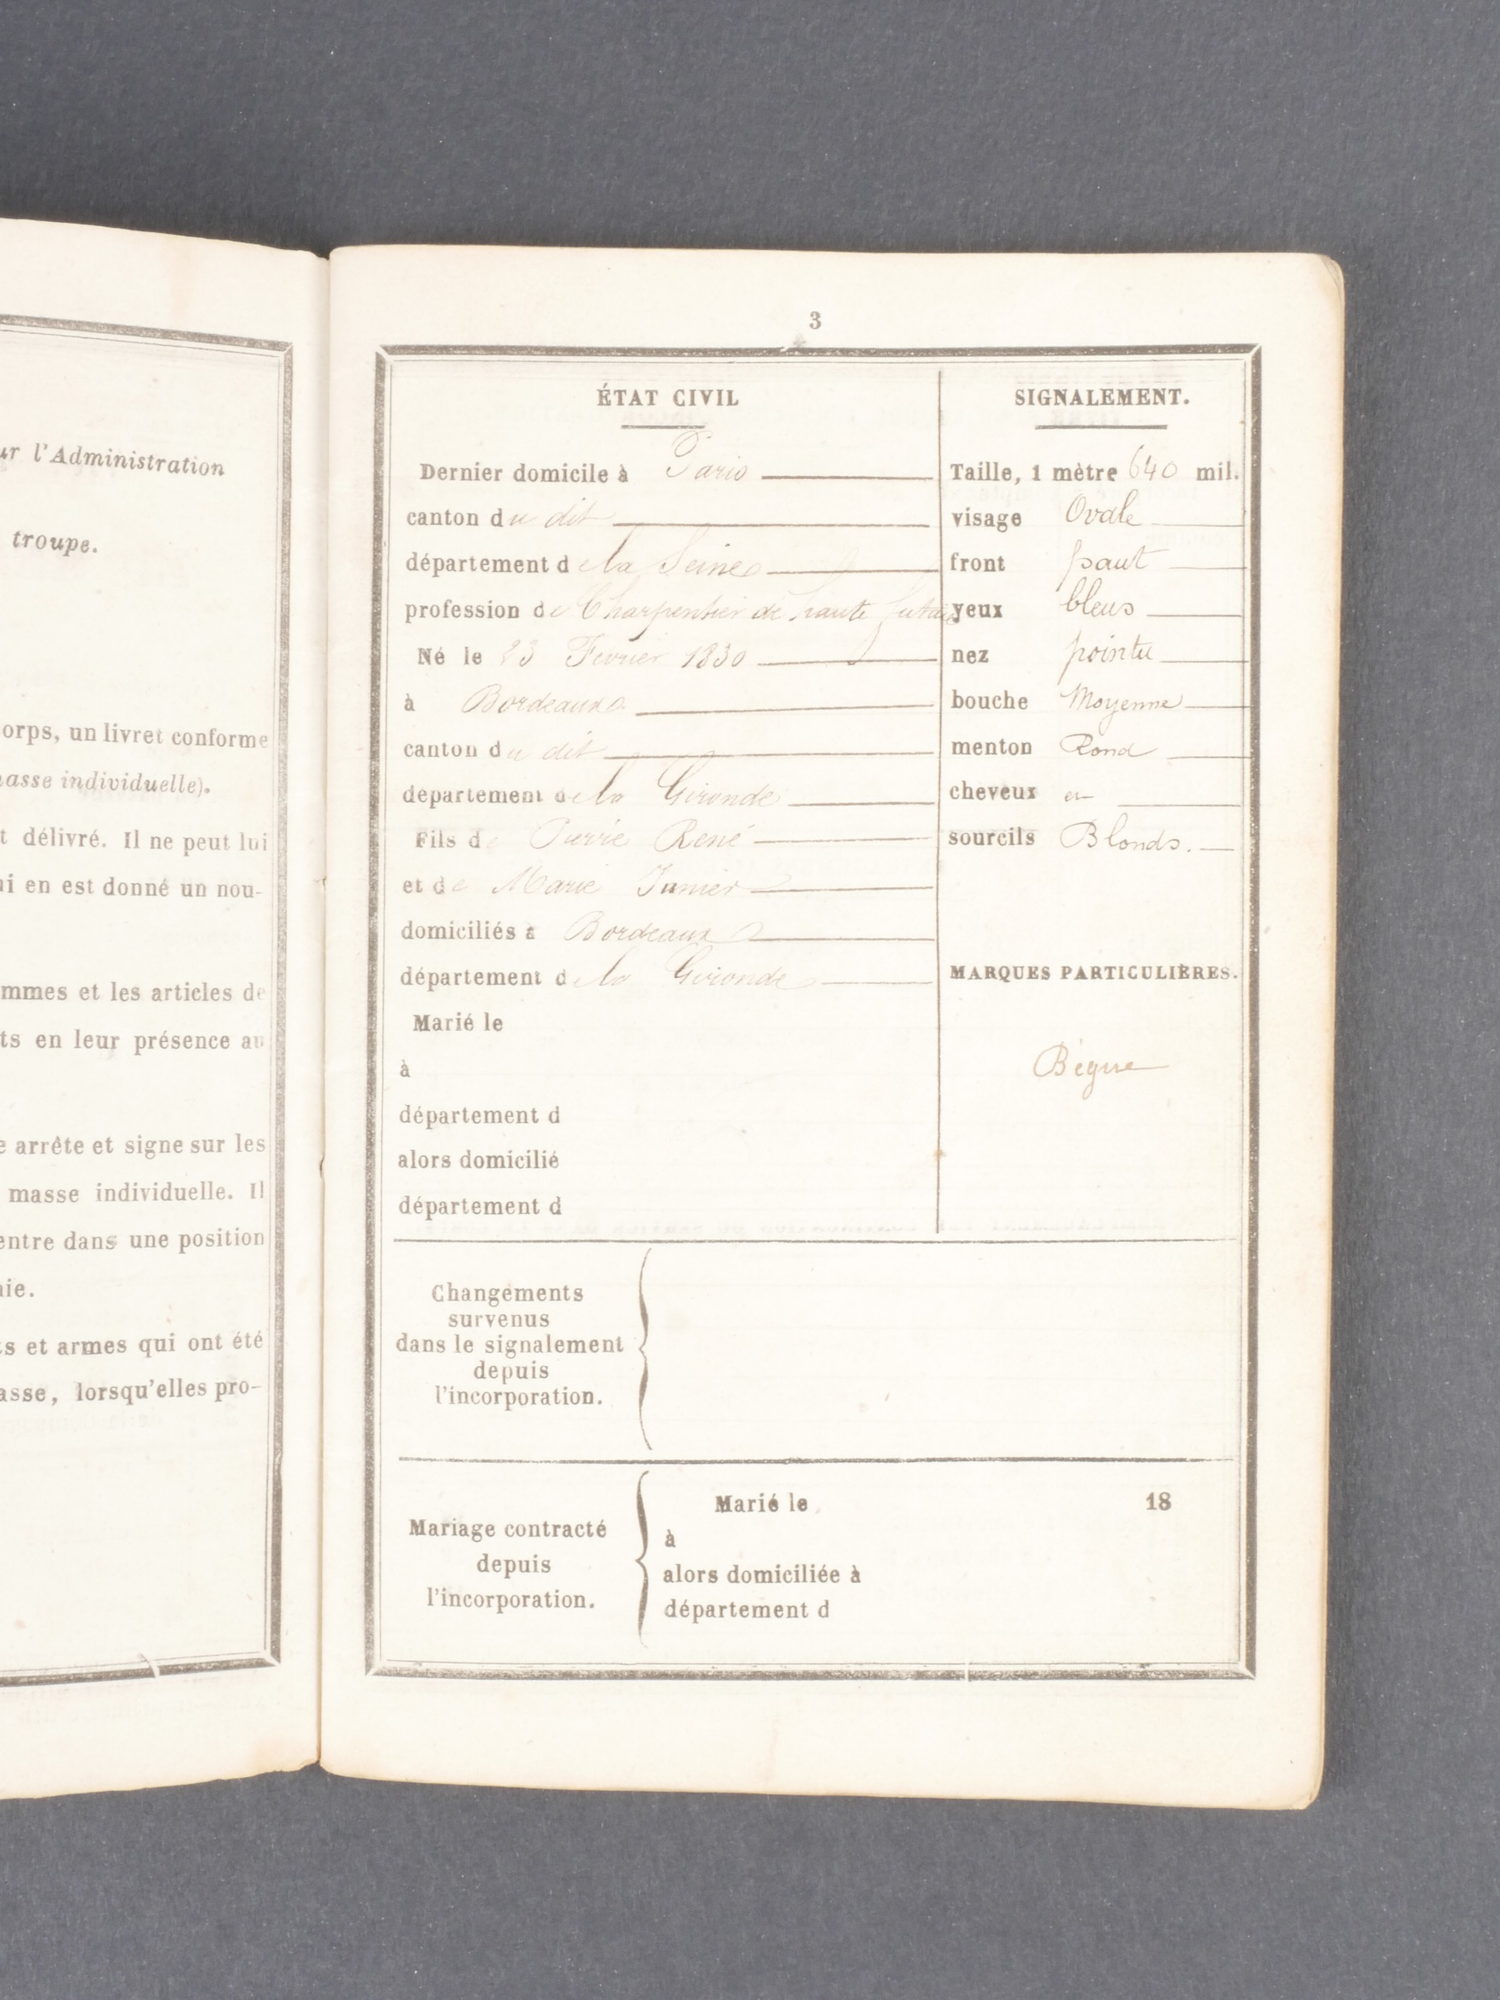 ur l'Administration
troupe.
orps, un livret conforme
nasse individuelle).
t délivré. Il ne peut lui
ui en est donné un nou-
mmes et les articles de
ts en leur présence au
e arrête et signe sur les
masse individuelle. Il
entre dans une position
nie.
ts et armes qui ont été
asse, lorsqu'elles pro-
3
ÉTAT CIVIL
Dernier domicile à Paris
canton du dit
département de la Seine
profession de Charpentier de haute futaie
Né le 23 Fevrier 1830
à Bordeaux
canton du dit
département de la Gironde
Fils de Pierre René
et de Marie Junier
domiciliés à Bordeaux
département de la Gironde
Marié le
à
département d
alors domicilié
département d
SIGNALEMENT.
Taille, 1 mètre 640 mil.
visage Ovale
front haut
yeux bleus
nez pointu
bouche Moyenne
menton Rond
cheveux et
sourcils Blonds.
MARQUES PARTICULIÈRES.
Bègue
Changements
survenus
dans le signalement
depuis
l'incorporation.
Mariage contracté
depuis
l'incorporation.
Marié le 18
à
alors domiciliée à
département d